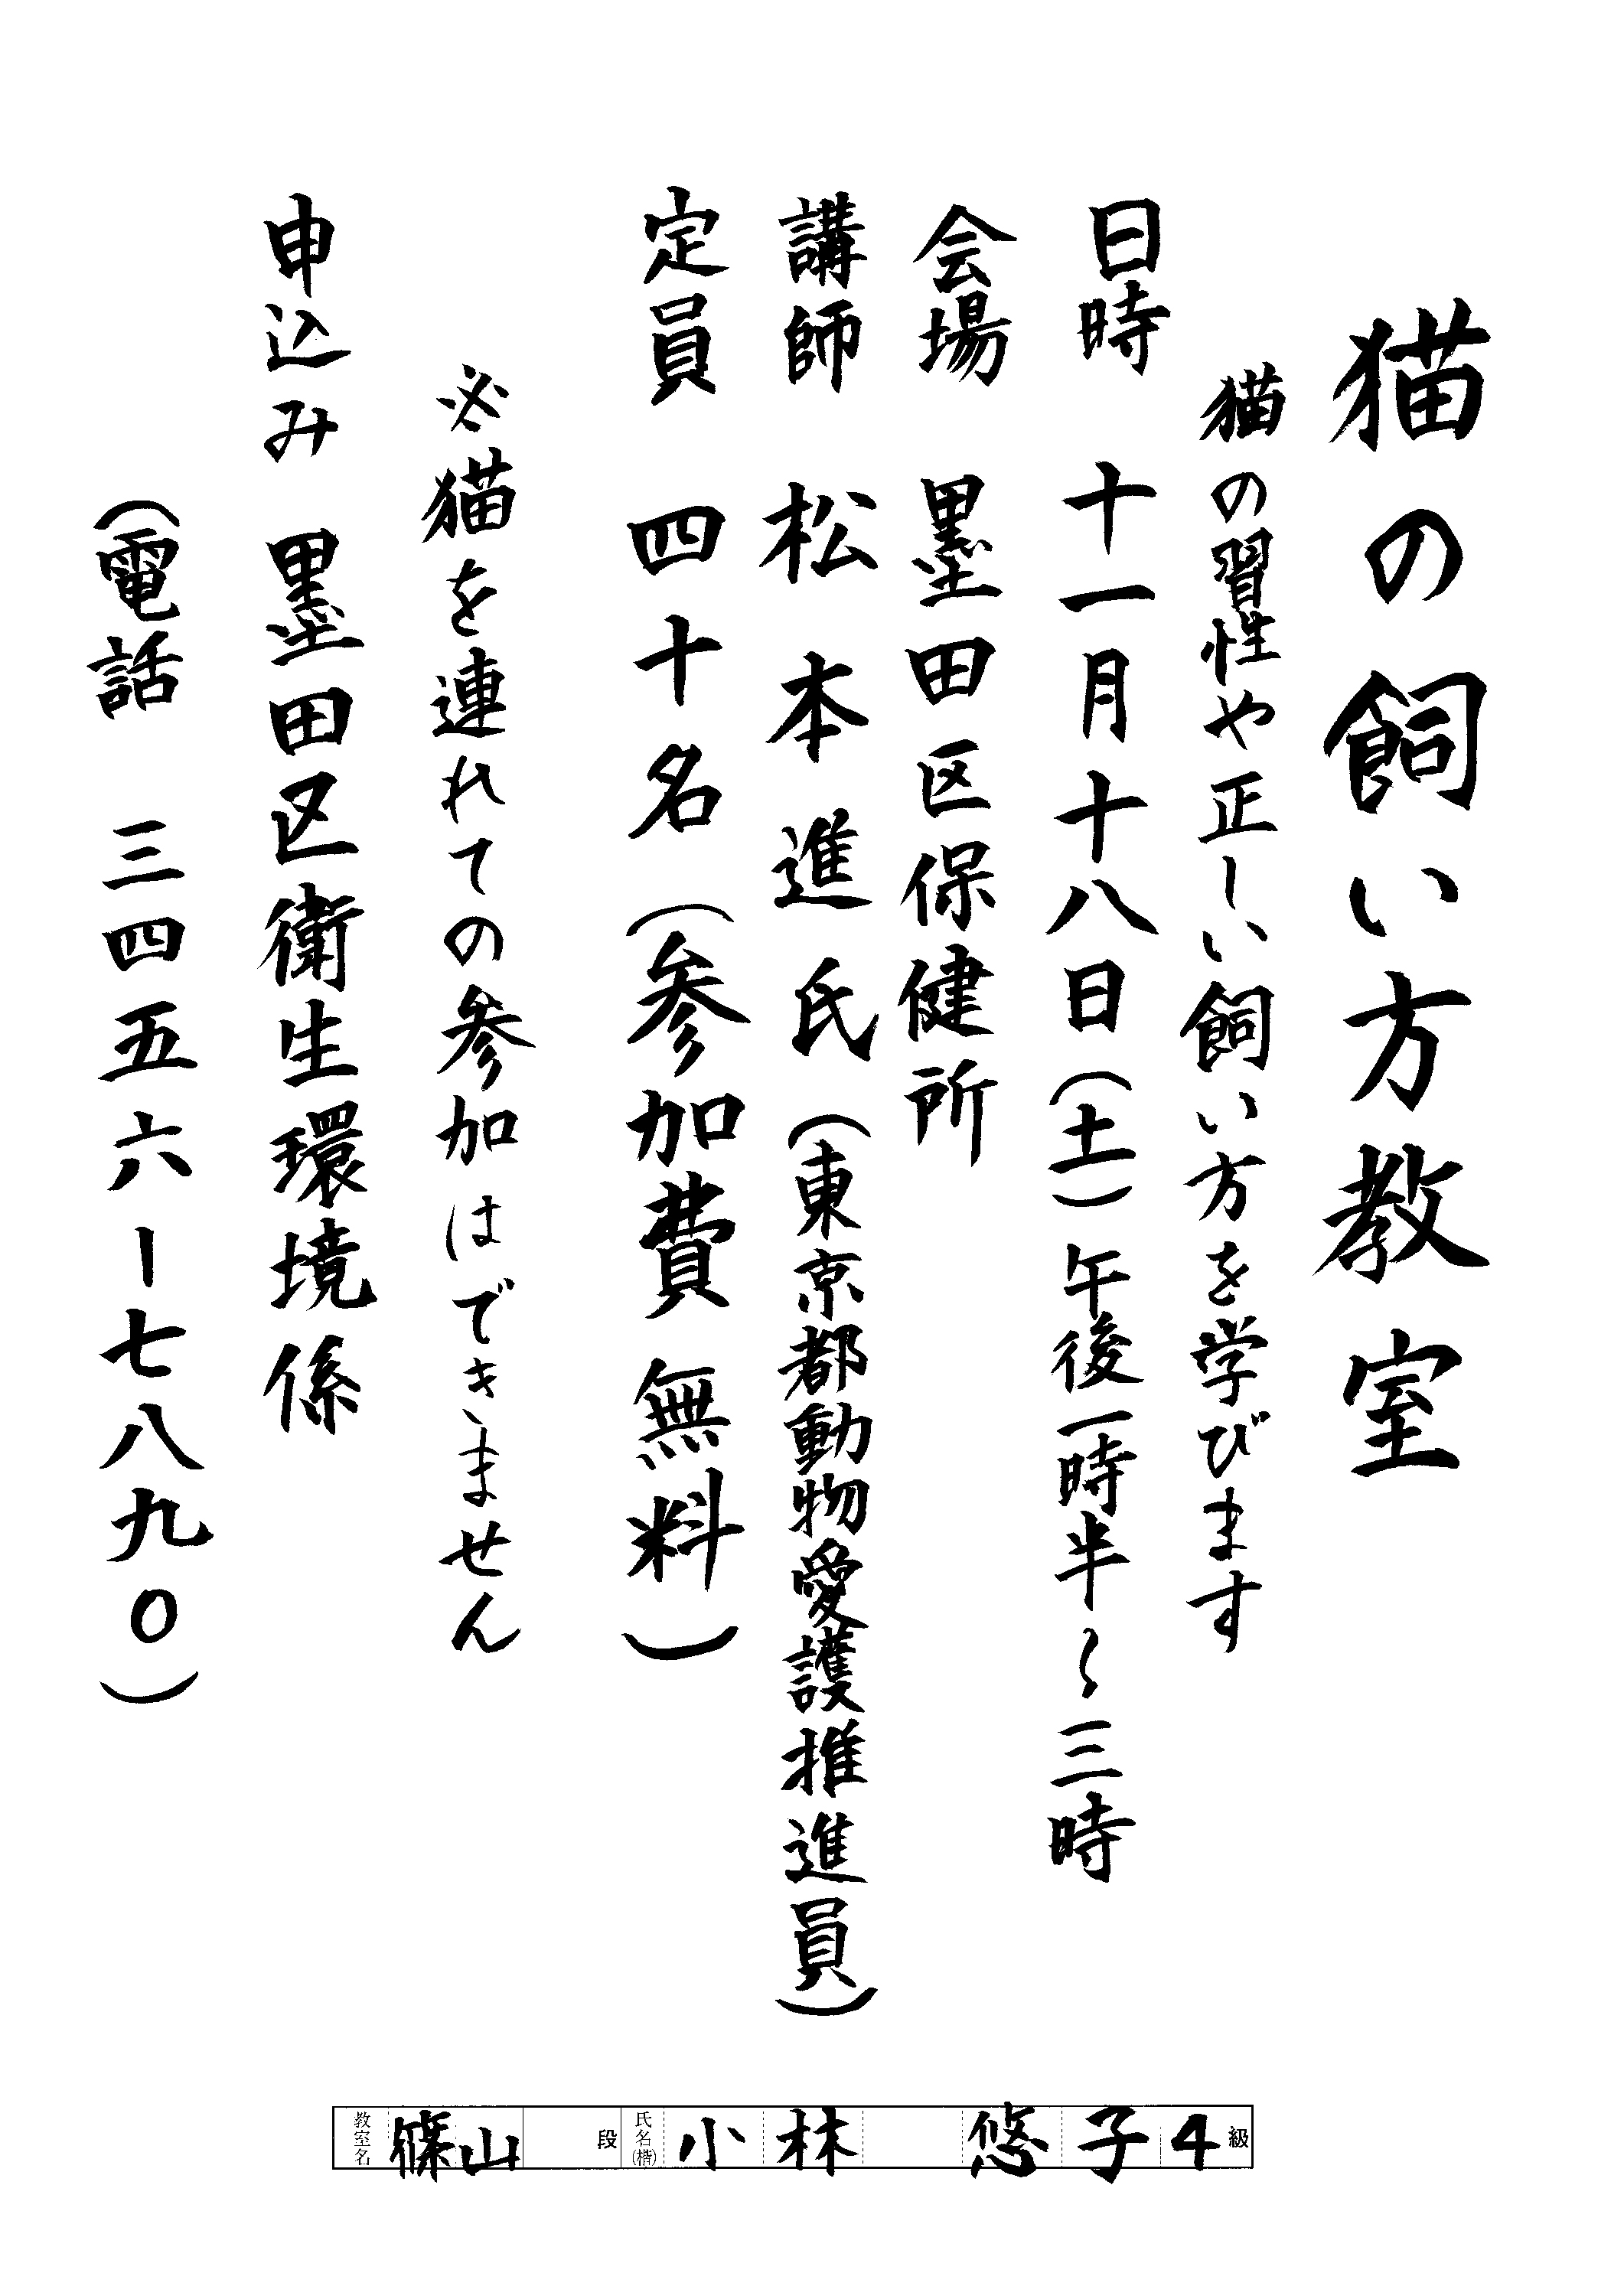 猫の飼い方教室
猫の習性や正しい飼い方を学びます
日時 十一月十八日(土)午後一時半〜三時
会場 墨田区保健所
講師 松本進氏(東京都動物愛護推進員)
定員 四十名(参加費無料)
※猫を連れての参加はできません
申込み 墨田区衛生環境係
(電話 三四五六ー七八九〇)
教室名 篠山 段 氏名(楷) 小林 悠子 4級